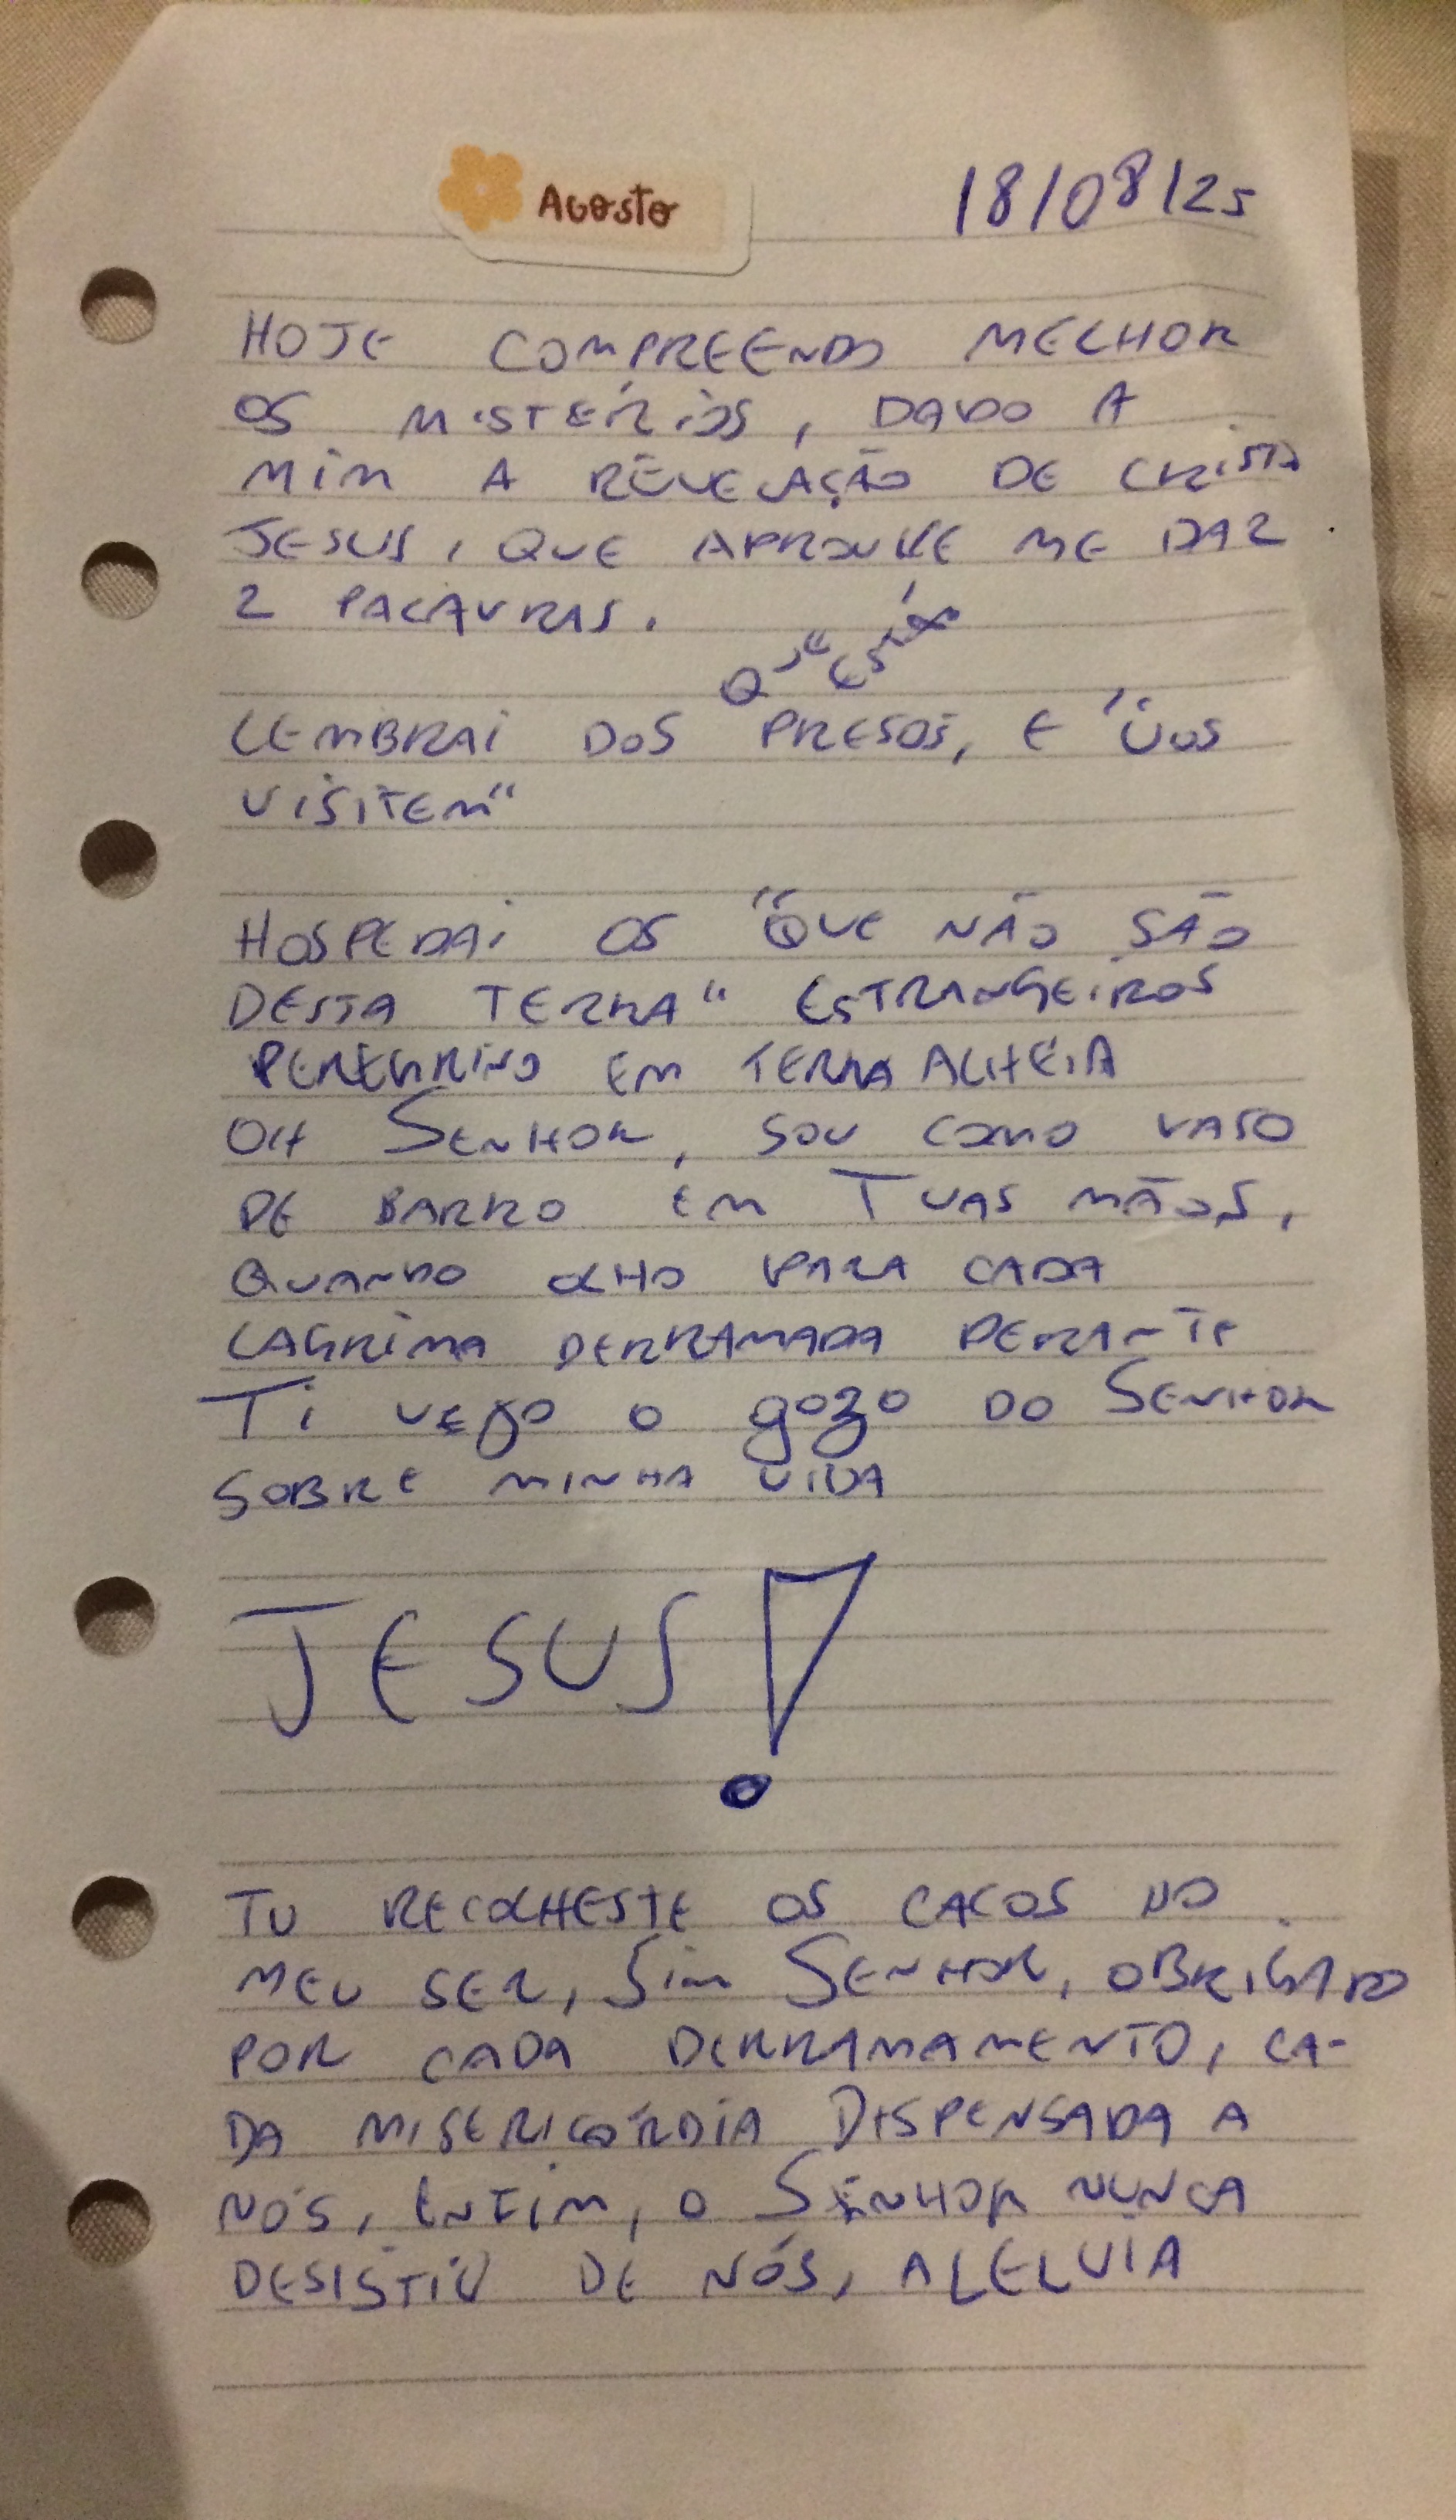 Agosto
18/08/25
HOJE COMPREENDO MELHOR
OS MISTÉRIOS, DADO A
MIM A REVELAÇÃO DE CRISTO
JESUS, QUE APROUVE ME DAR
2 PALAVRAS.
QUE ESTÃO
LEMBRAI DOS PRESOS, E "VOS
VISITEM"
HOSPEDAI OS "QUE NÃO SÃO
DESTA TERRA" ESTRANGEIROS
PEREGRINO EM TERRA ALHEIA
OH SENHOR, SOU COMO VASO
DE BARRO EM TUAS MÃOS,
QUANDO OLHO PARA CADA
LAGRIMA DERRAMADA PERANTE
TI VEJO O gozo DO SENHOR
SOBRE MINHA VIDA
JESUS!
TU RECOLHESTE OS CACOS DO
MEU SER, SIM SENHOR, OBRIGADO
POR CADA DERRAMAMENTO, CA-
DA MISERICÓRDIA DISPENSADA A
NÓS, ENFIM, O SENHOR NUNCA
DESISTIU DE NÓS, ALELUIA